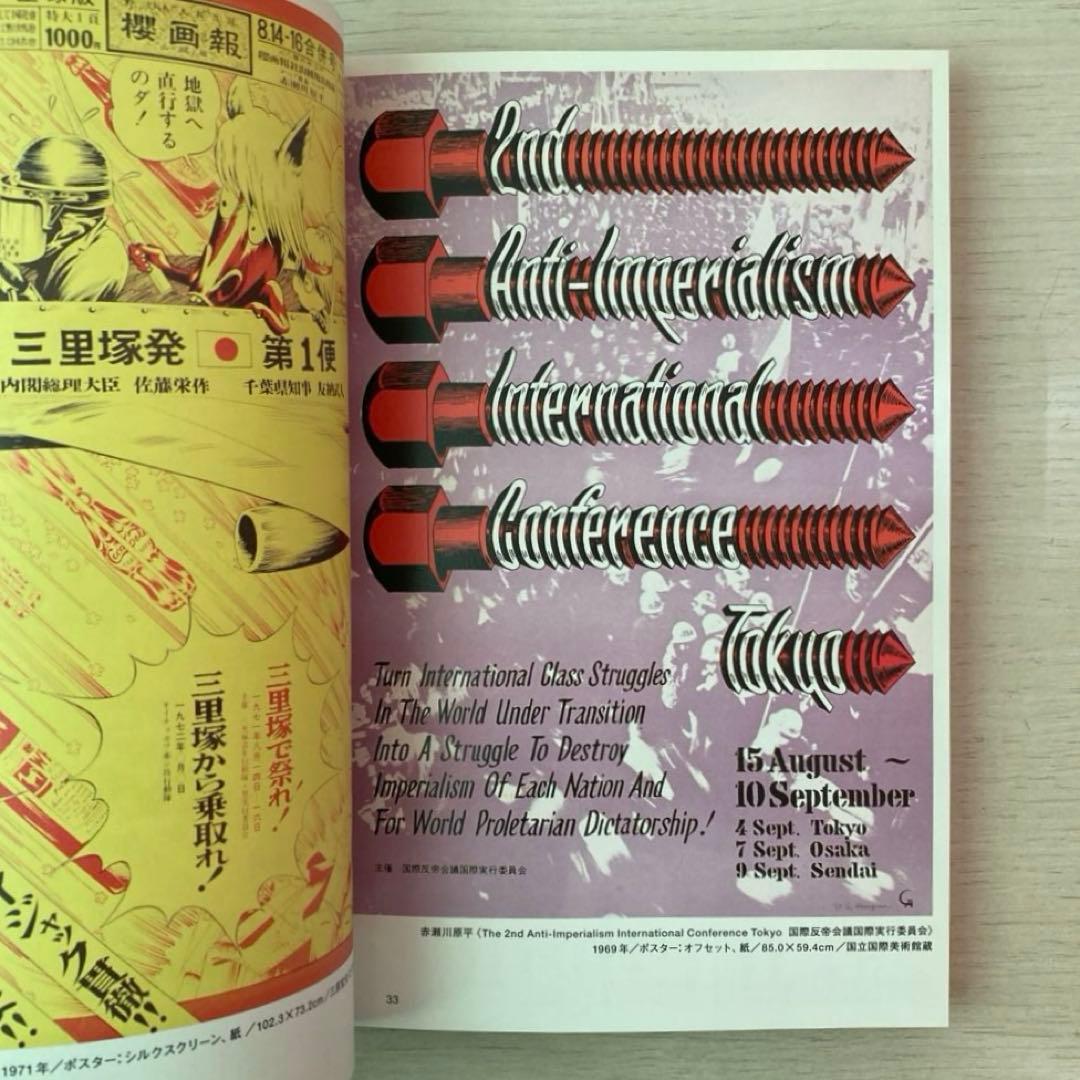 特大1頁
1000円
櫻画報
8.14-16合併号
地獄へ
直行する
のダ!
三里塚発
第1便
内閣総理大臣 佐藤栄作
千葉県知事 友納武人
三里塚で祭れ!
一九七一年八月一四日—一六日
三里塚から乗取れ!
ジャック貫徹!!
1971年/ポスター:シルクスクリーン、紙/102.3×73.2cm/
2nd.
Anti-Imperialism
International
Conference
Tokyo
Turn International Class Struggles
In The World Under Transition
Into A Struggle To Destroy
Imperialism Of Each Nation And
For World Proletarian Dictatorship!
15 August ~
10 September
4 Sept. Tokyo
7 Sept. Osaka
9 Sept. Sendai
主催 国際反帝会議国際実行委員会
赤瀬川原平《The 2nd Anti-Imperialism International Conference Tokyo 国際反帝会議国際実行委員会》
1969年/ポスター:オフセット、紙/85.0×59.4cm/国立国際美術館蔵
33